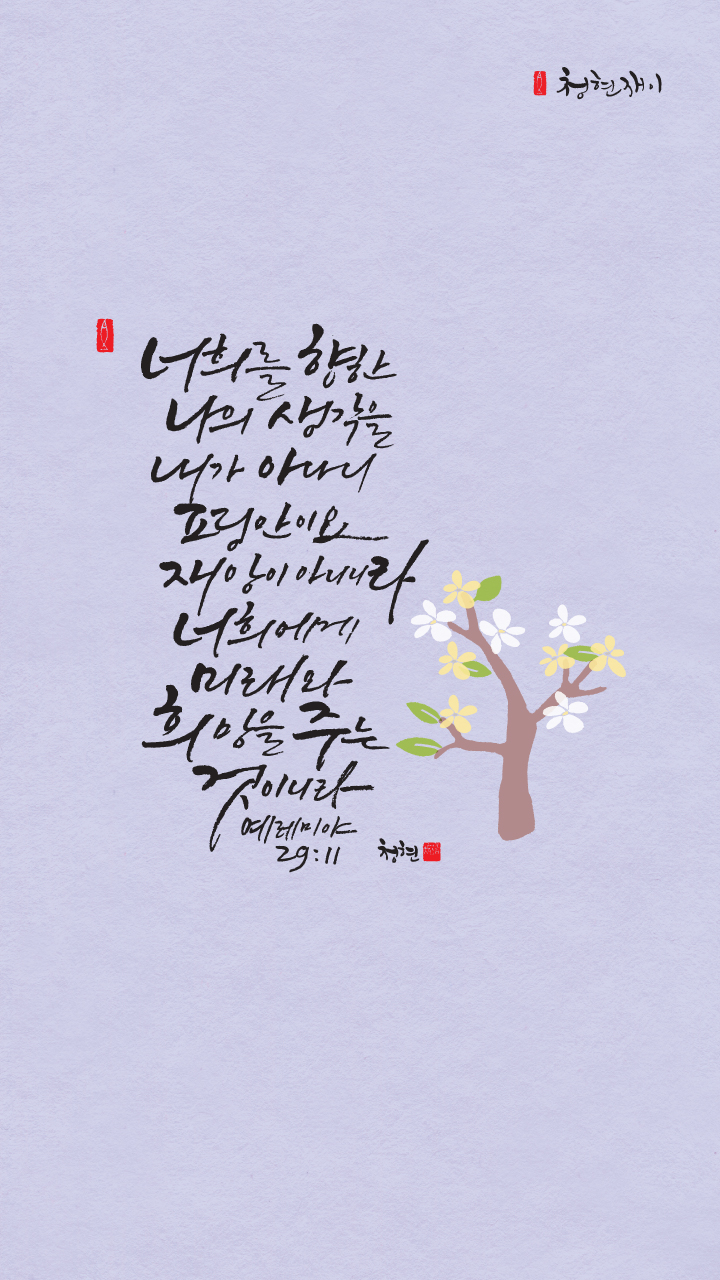 청현재이
너희를 향한
나의 생각을
내가 아나니
평안이요
재앙이 아니니라
너희에게
미래와
희망을 주는
것이니라
예레미야
29:11
청현